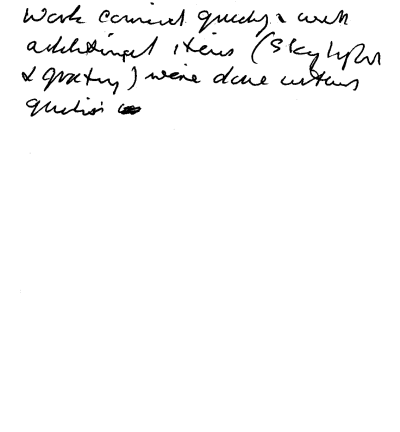 Work carried quickly & well
additional items (Skylight
&) were done without
question